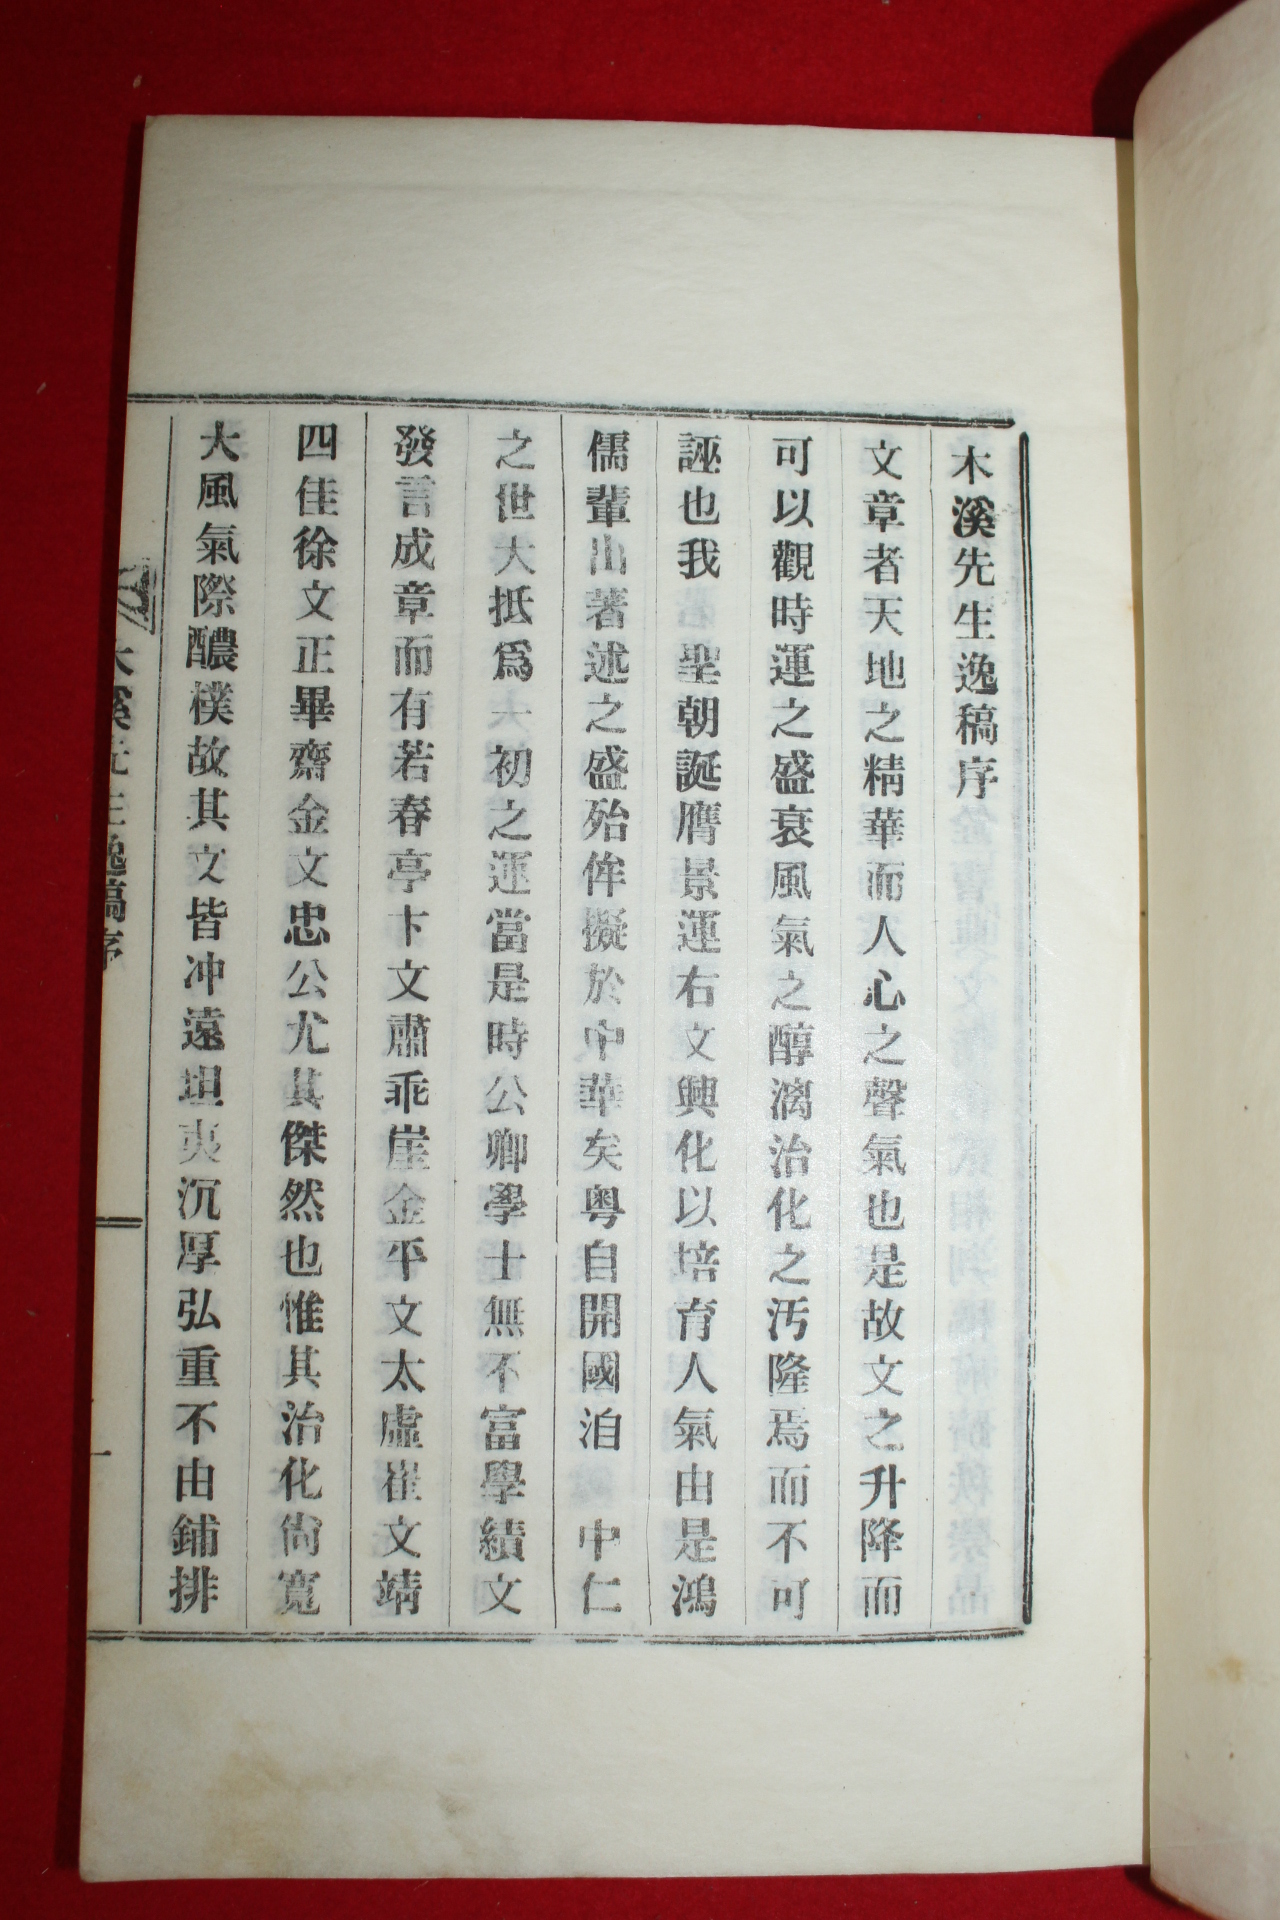 木溪先生逸稿序
文章者天地之精華而人心之聲氣也是故文之升降而
可以觀時運之盛衰風氣之醇漓治化之汚隆焉而不可
誣也我 聖朝誕膺景運右文興化以培育人氣由是鴻
儒輩出著述之盛殆侔擬於中華矣粤自開國洎 中仁
之世大抵爲一初之運當是時公卿學士無不富學績文
發言成章而有若春亭卞文肅乖崖金平文太虛崔文靖
四佳徐文正畢齋金文忠公尤其傑然也惟其治化尙寬
大風氣際醲樸故其文皆冲遠坦夷沉厚弘重不由鋪排
木溪先生逸稿序
一